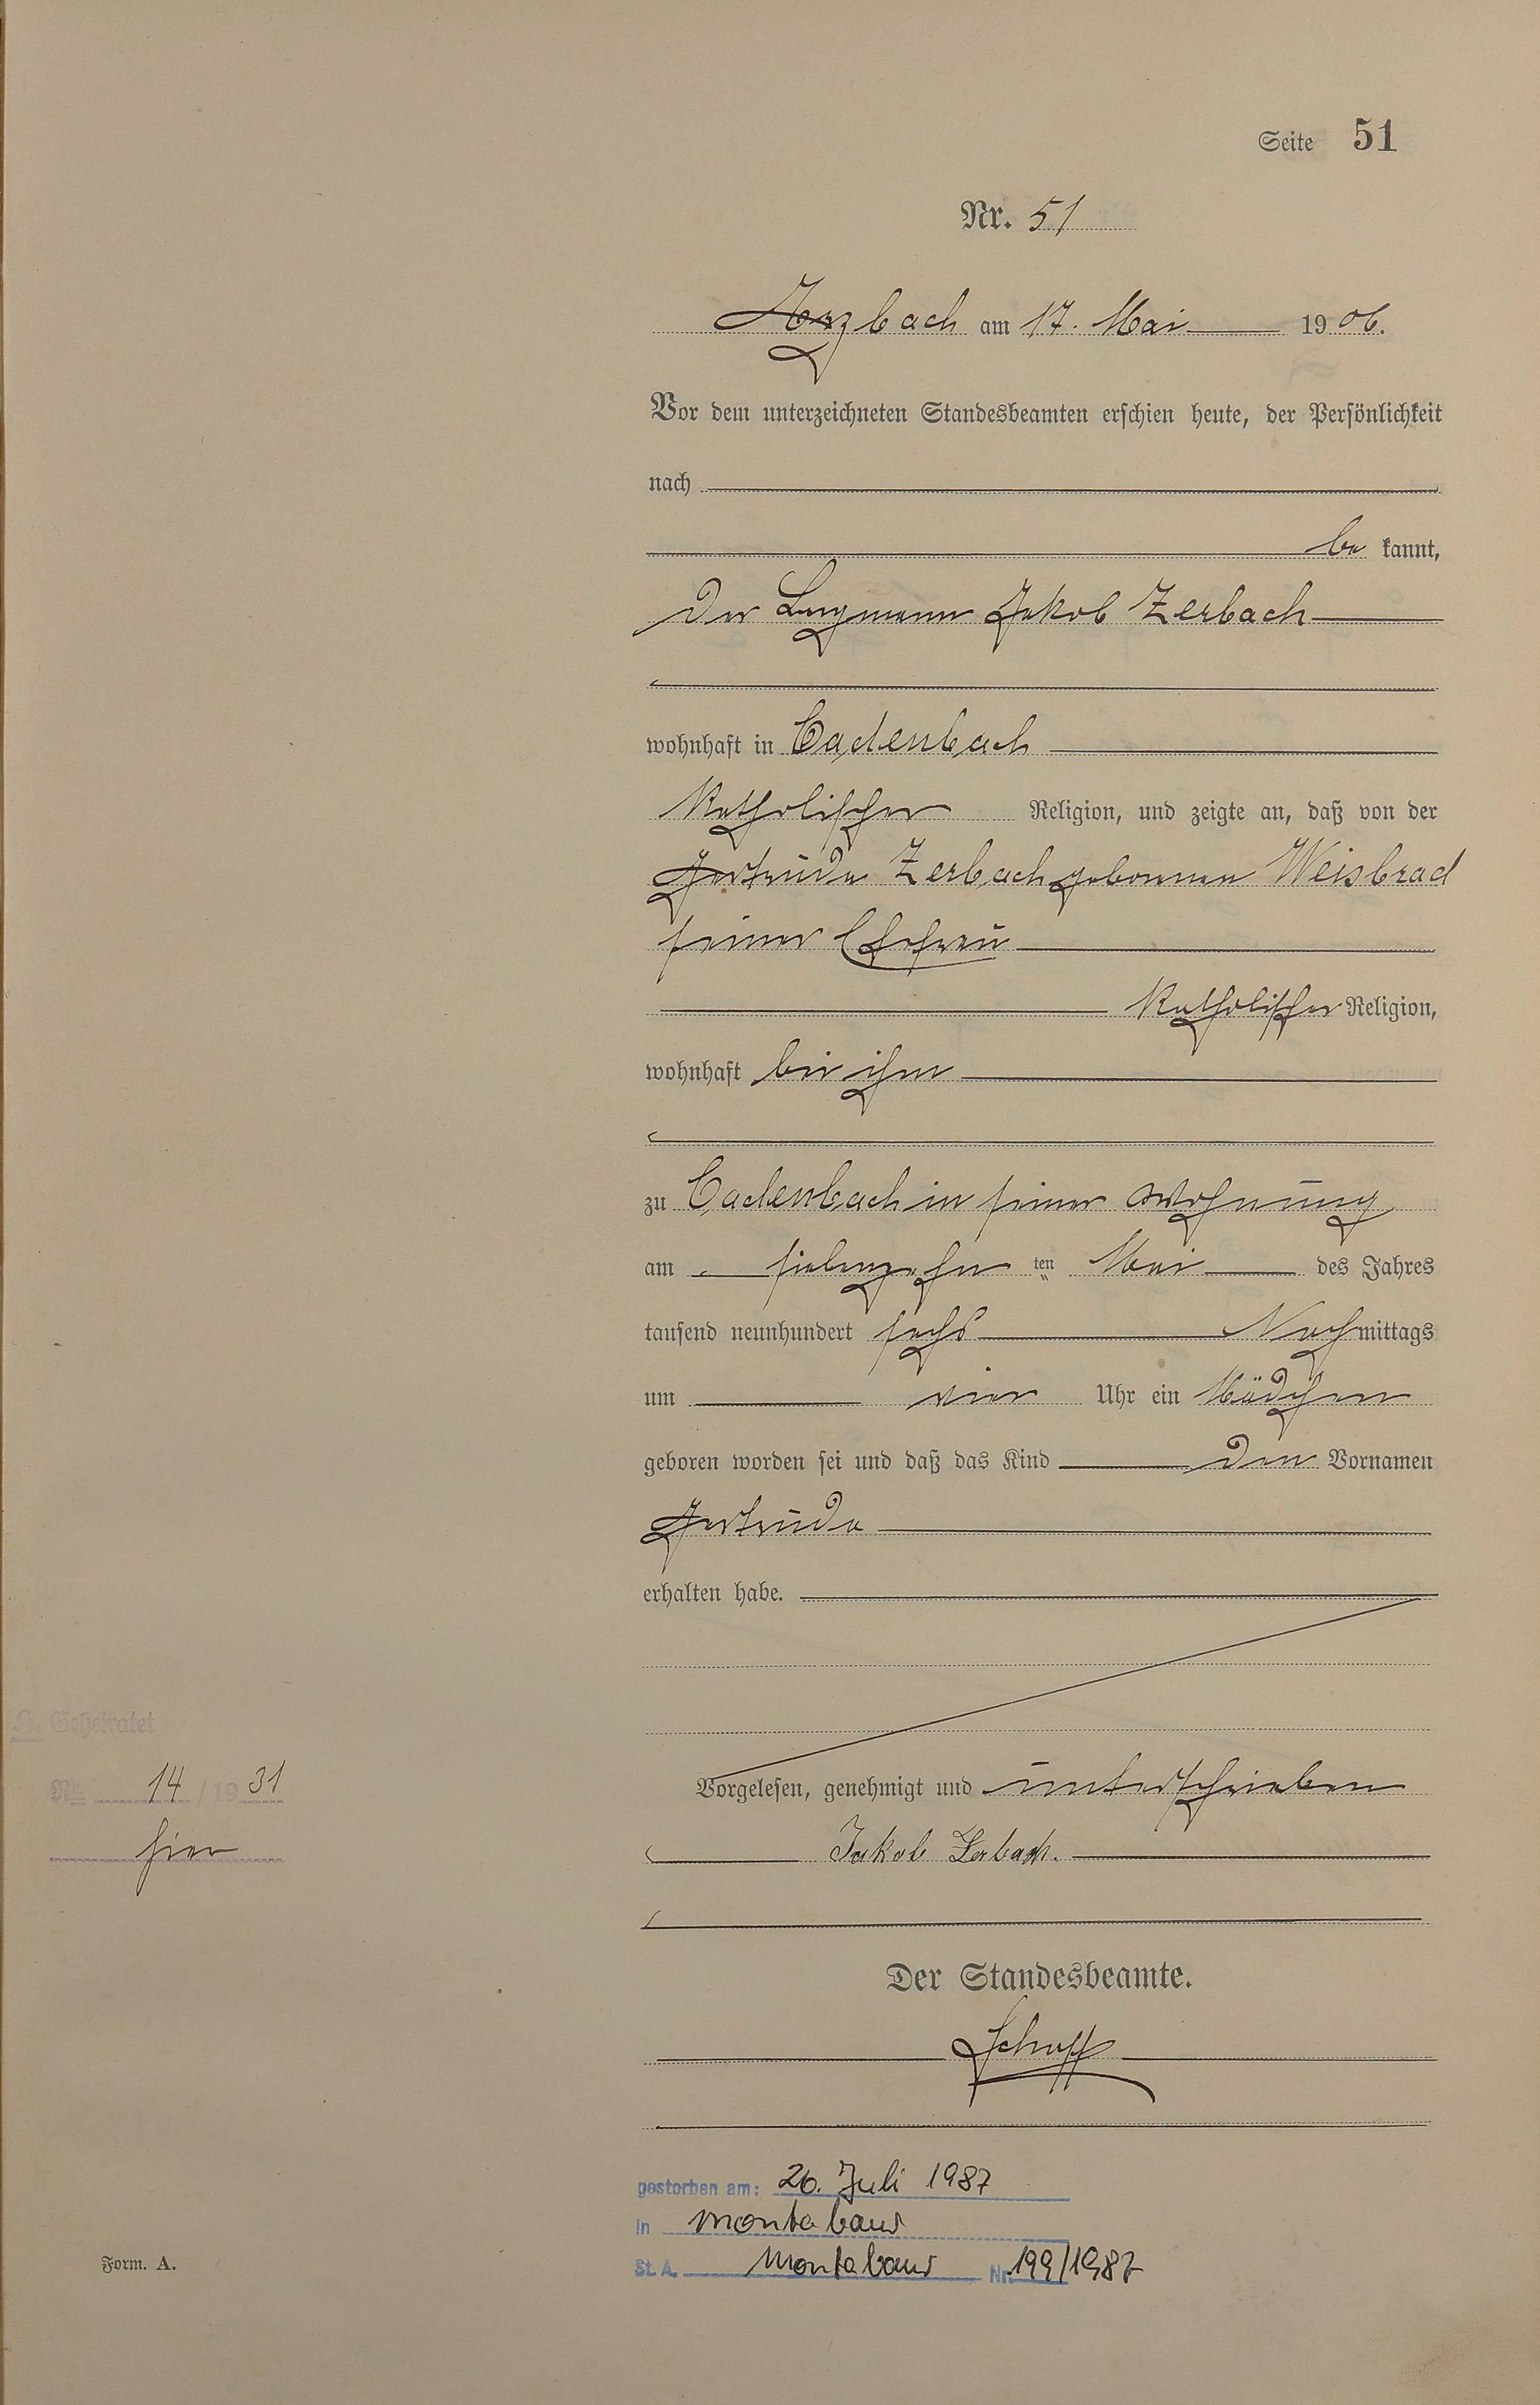 Seite 51
Nr. 51
Arzbach am 17. Mai 1906.
Vor dem unterzeichneten Standesbeamten erschien heute, der Persönlichkeit
nach
be kannt,
der Bergmann Jakob Zerbach
wohnhaft in Cadenbach
katholischer Religion, und zeigte an, daß von der
Gertrude Zerbach geborenen Weisbrod
seiner Ehefrau
katholischer Religion,
wohnhaft bei ihm
zu Cadenbach in seiner Wohnung
am siebenzehn ten Mai des Jahres
tausend neunhundert sechs Nachmittags
um vier Uhr ein Mädchen
geboren worden sei und daß das Kind den Vornamen
Gertrude
erhalten habe.
Vorgelesen, genehmigt und unterschrieben
Jakob Zerbach.
Der Standesbeamte.
Geheiratet
Nr. 14 / 1931
hier
gestorben am: 26. Juli 1987
in Montabaur
St. A. Montabaur Nr. 199/1987
Form. A.